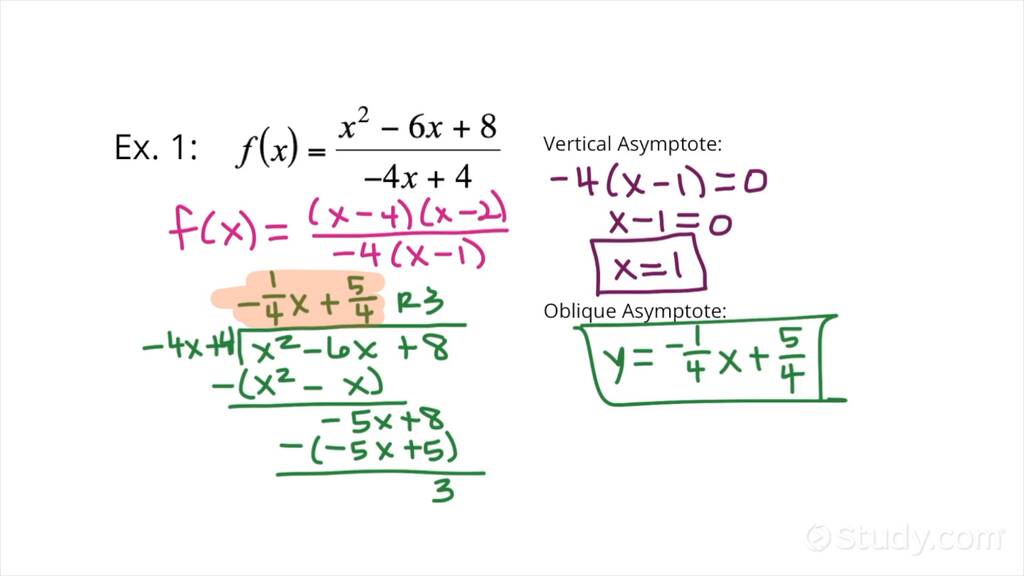 Ex. 1: f(x) = (x² − 6x + 8)/(−4x + 4)
f(x) = (x−4)(x−2)/−4(x−1)
-1/4x + 5/4 R3
-4x+4 | x² - 6x + 8
-(x² - x)
-5x+8
-(-5x+5)
3
Vertical Asymptote:
-4(x-1)=0
x-1=0
x=1
Oblique Asymptote:
y = -1/4x + 5/4
Study.com